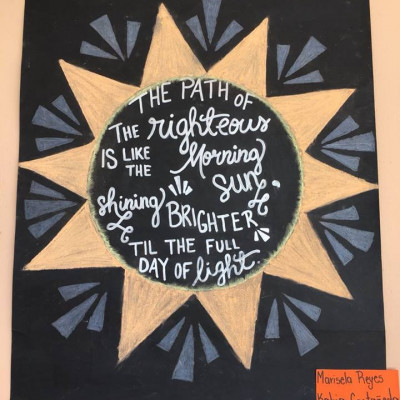 THE PATH OF
THE righteous
IS LIKE THE Morning
shining SUN,
BRIGHTER
'TIL THE FULL
DAY OF light.
Marisela Reyes